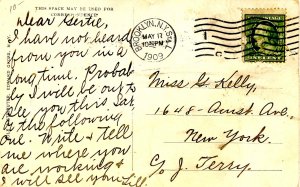 10
THIS SPACE MAY BE USED FOR
CORRESPONDENCE
Dear Gertie,
I have not heard
from you in a
long time. Probab
ly I will be out to
see you this, Sat
or the following
one. Write & tell
me where you
are working &
I will see you
BROOKLYN, N.Y.
MAY 17
10 PM
1909
Miss G. Kelly,
1648- Amst. Ave
New York.
C/o J. Terry.